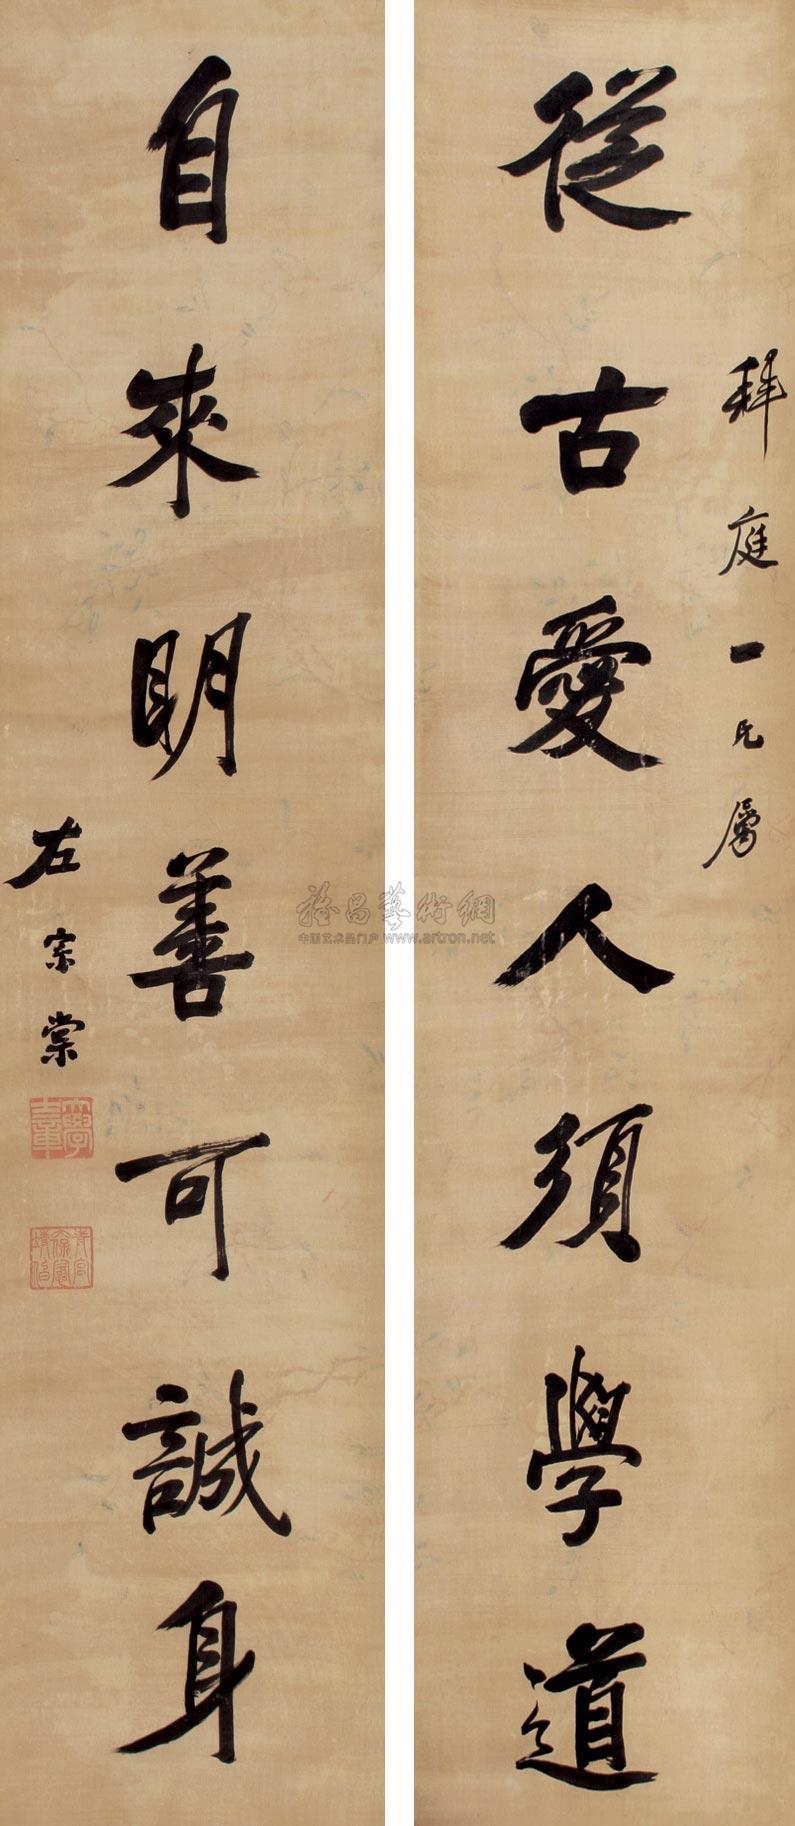 拜庭一兄屬
從古愛人須學道
自來明善可誠身
左宗棠
雅昌藝術網
中国艺术品门户 www.artron.net